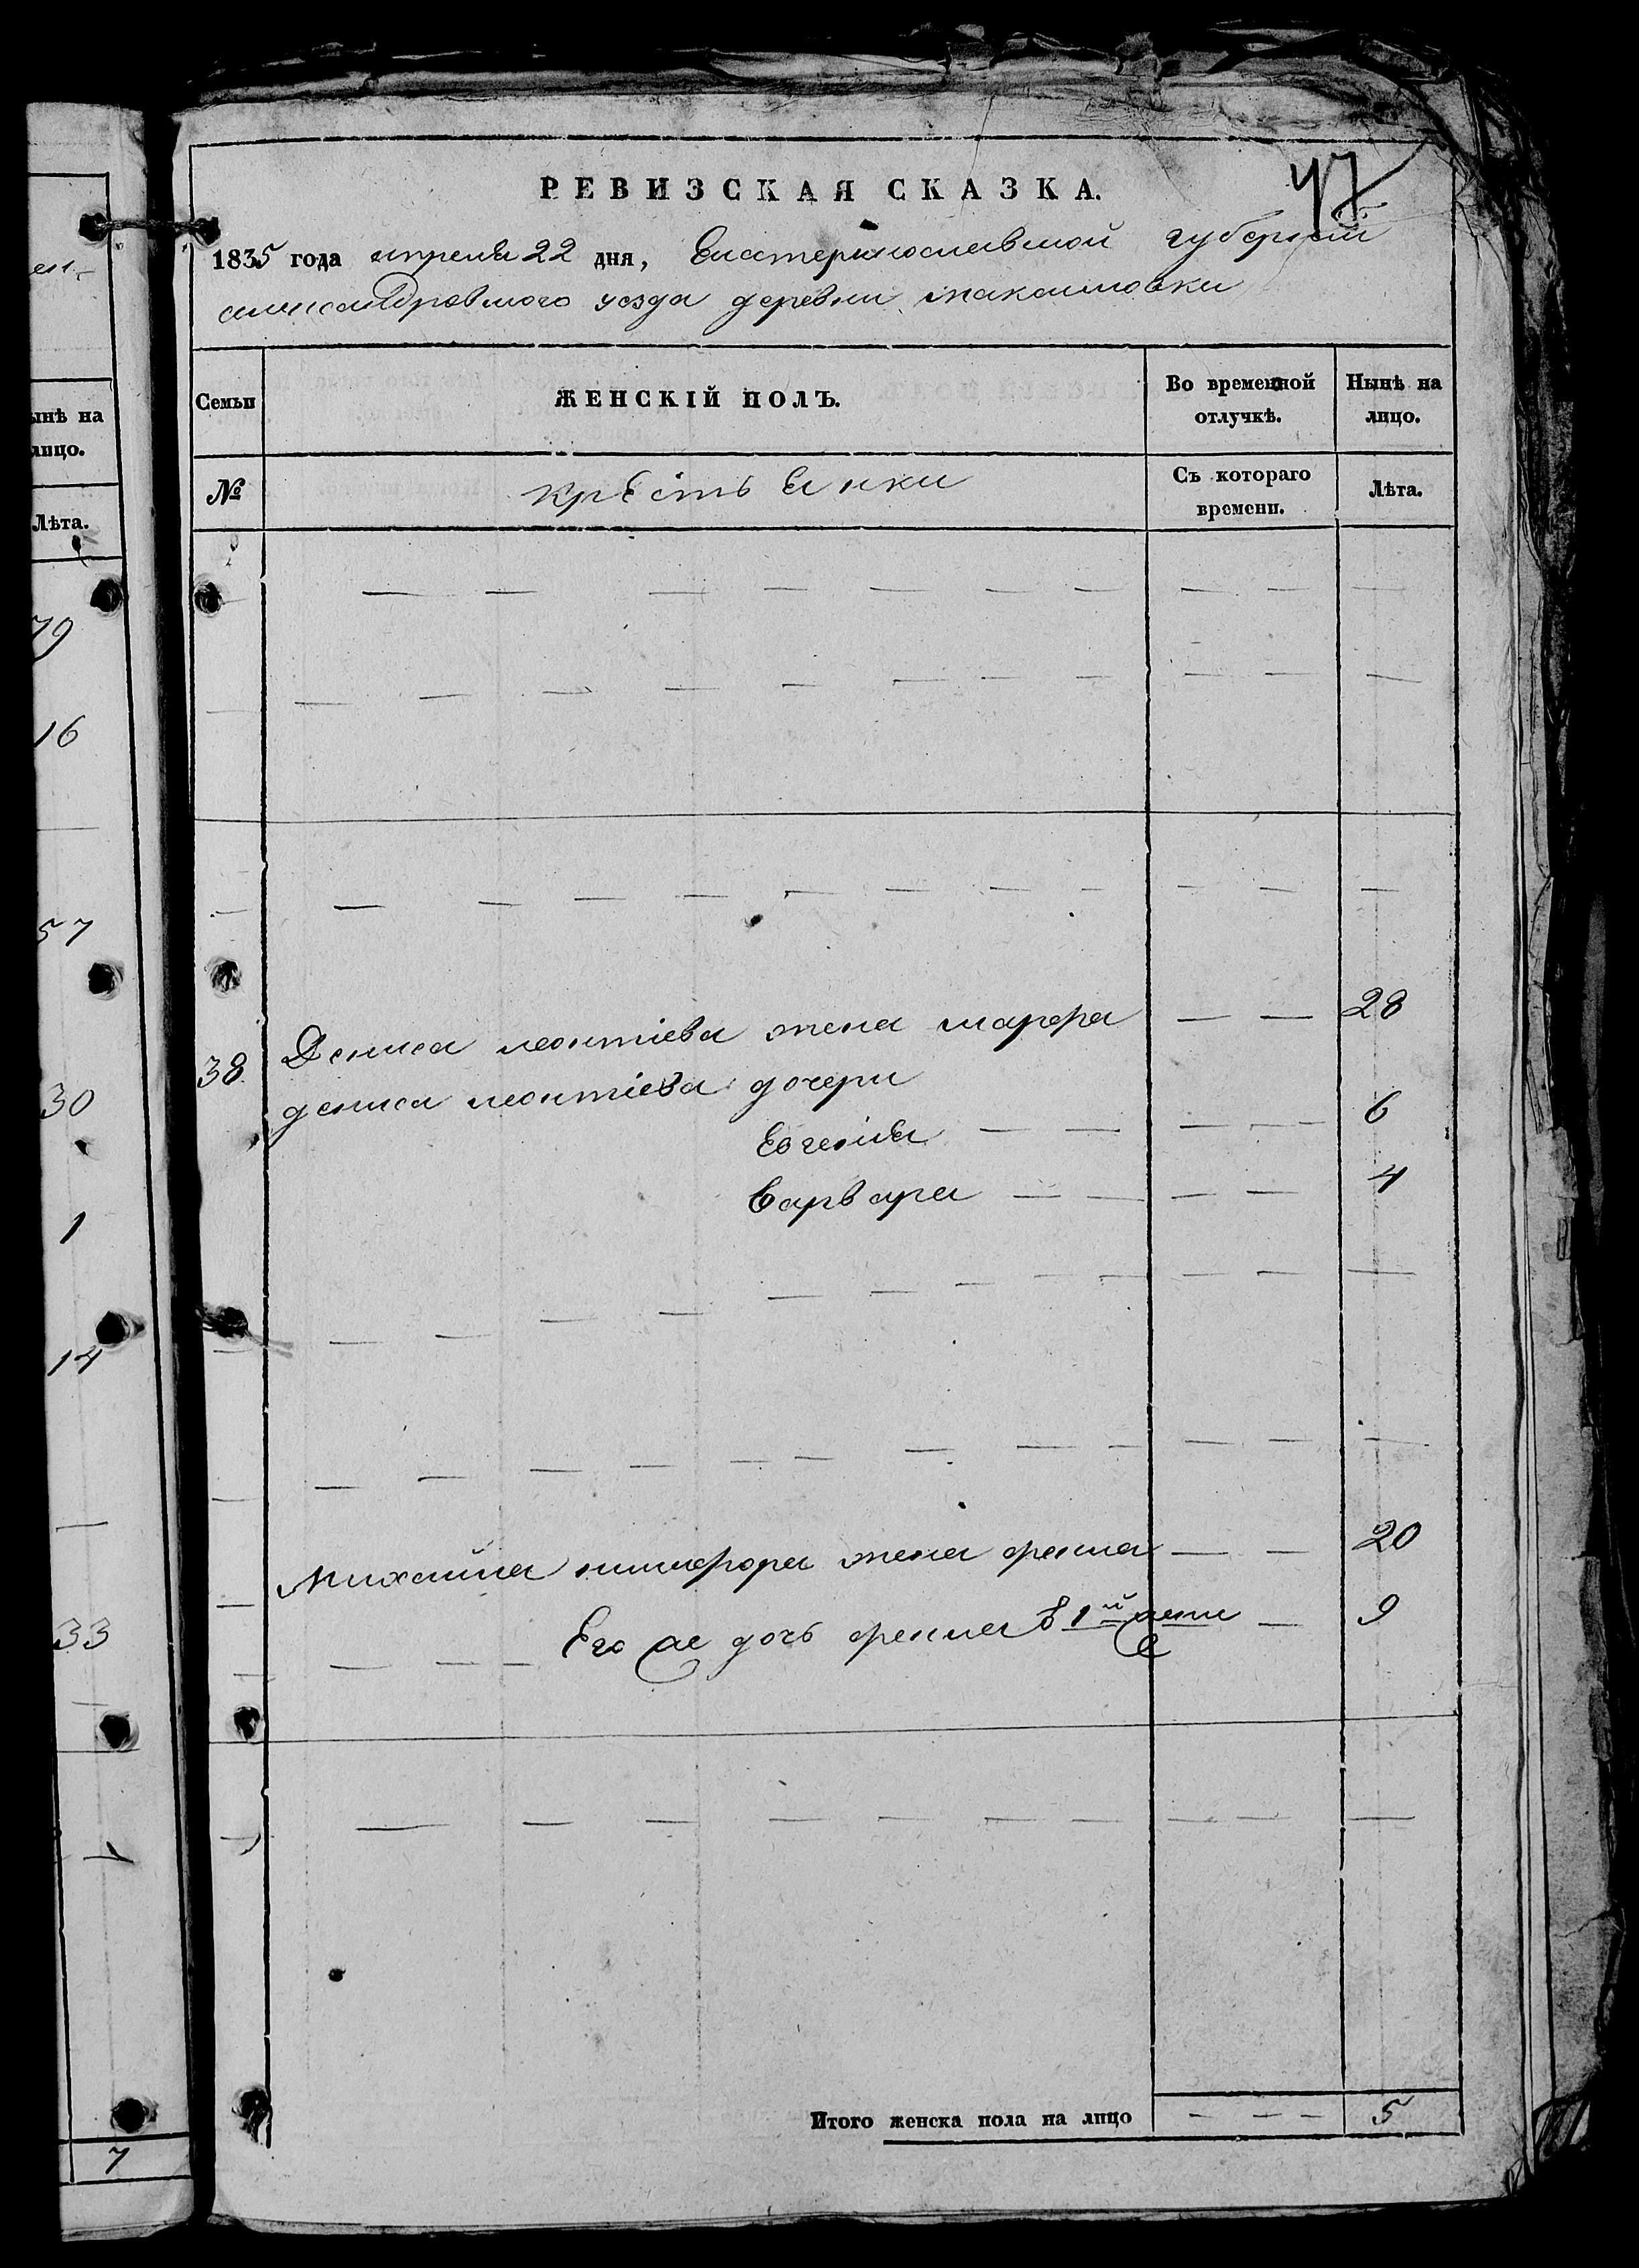 ен-
ынѣ на
лицо.
Лѣта.
79
16
57
30
1
14
33
7
47
РЕВИЗСКАЯ СКАЗКА.
1835 года апреля 22 дня, Екатеринославской губернiи
александровского уезда деревни максимовки
Семьи
ЖЕНСКІЙ ПОЛЪ.
Во временной отлучкѣ.
Нынѣ на лицо.
№
Крестьянки
Съ котораго времени.
Лѣта.
38
Дениса леонтiева жена марфа — — 28
дениса леонтiева дочери
Евгенiя — — — — 6
Варвара — — — — 4
Михайла никифора жена фекла — — 20
Его же дочь фекла 1й — 9
Итого женска пола на лицо — — — 5